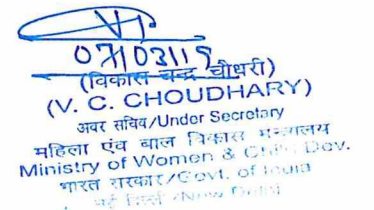 07/03/19
(विकास चन्द्र चौधरी)
(V. C. CHOUDHARY)
अवर सचिव/Under Secretary
महिला एंव बाल विकास मन्त्रालय
Ministry of Women & Child Dev.
भारत सरकार/Govt. of India
नई दिल्ली/New Delhi